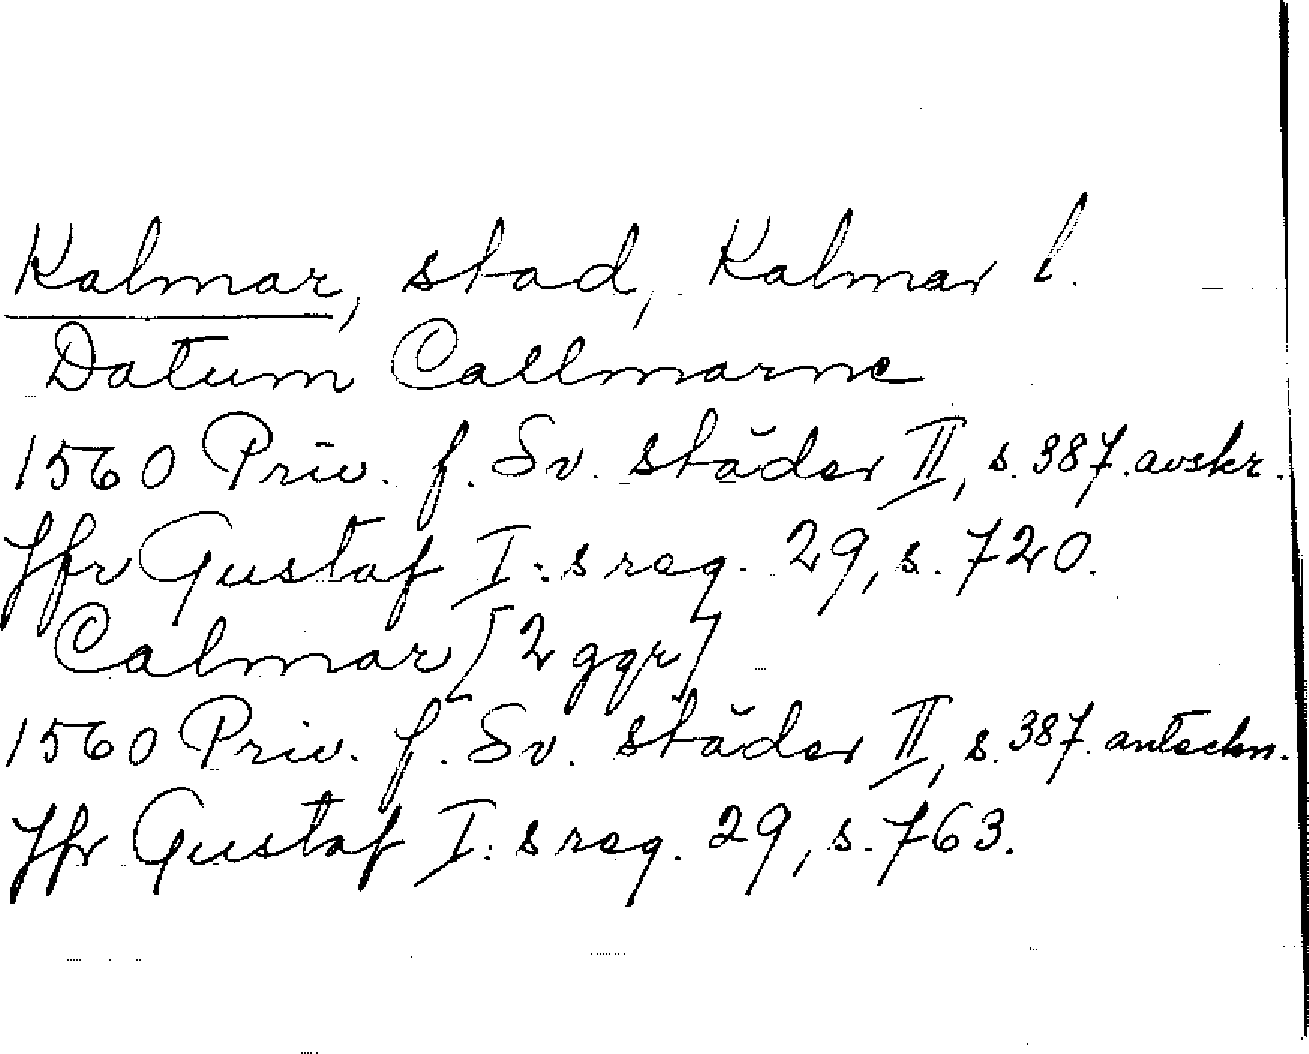 Kalmar, stad, Kalmar l.
Datum Callmarne
1560 Priv. f. Sv. städer II, s. 387. avskr.
Jfr Gustaf I:s reg. 29, s. 720.
Calmar [2 ggr]
1560 Priv. f. Sv. städer II, s. 387. anteckn.
Jfr Gustaf I:s reg. 29, s. 763.